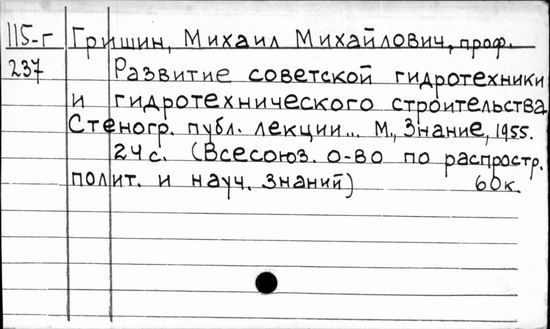 115-г Гришин, Михаил Михайлович, проф.
237 Развитие советской гидротехники
и гидротехнического строительства.
Стеногр. публ. лекции... М., Знание, 1955.
24 с. (Всесоюз. о-во по распростр.
полит. и науч. знаний) 60к.